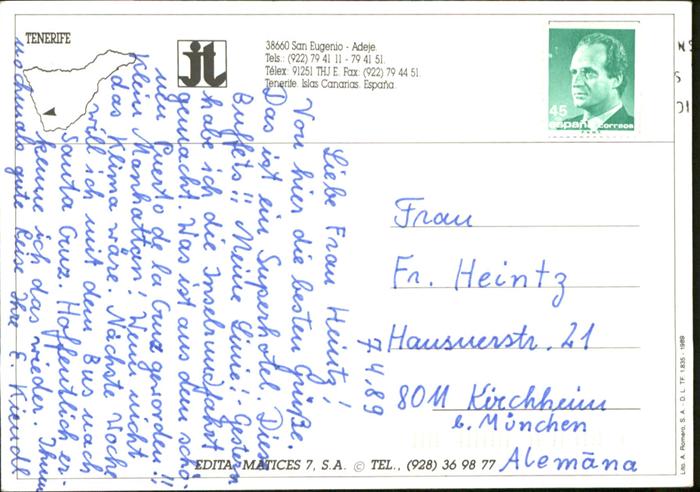 TENERIFE
jt
38660 San Eugenio - Adeje.
Tels.: (922) 79 41 11 - 79 41 51.
Télex: 91251 THJ E. Fax: (922) 79 44 51.
Tenerife. Islas Canarias. España.
45
españa correos
7.4.89
Liebe Frau Heintz!
Von hier die besten Grüße.
Das ist ein Superhotel. Diese
Buffets!! Meine Linie! - Gestern
habe ich die Inselrundfahrt
gemacht. Was ist aus dem schö-
nen Puerto de la Cruz geworden!!
Klein Manhattan! Wenn nicht
das Klima wäre. Nächste Woche
will ich mit dem Bus nach
Santa Cruz. Hoffentlich er-
kenne ich das wieder. Ihnen
nochmals gute Reise Ihre E. Kiendl
Frau
Fr. Heintz
Hausnerstr. 21
8011 Kirchheim
b. München
Alemãna
EDITA: MATICES 7, S.A. © TEL., (928) 36 98 77
Lito. A. Romero, S. A. - D. L. TF. 1.835 - 1989